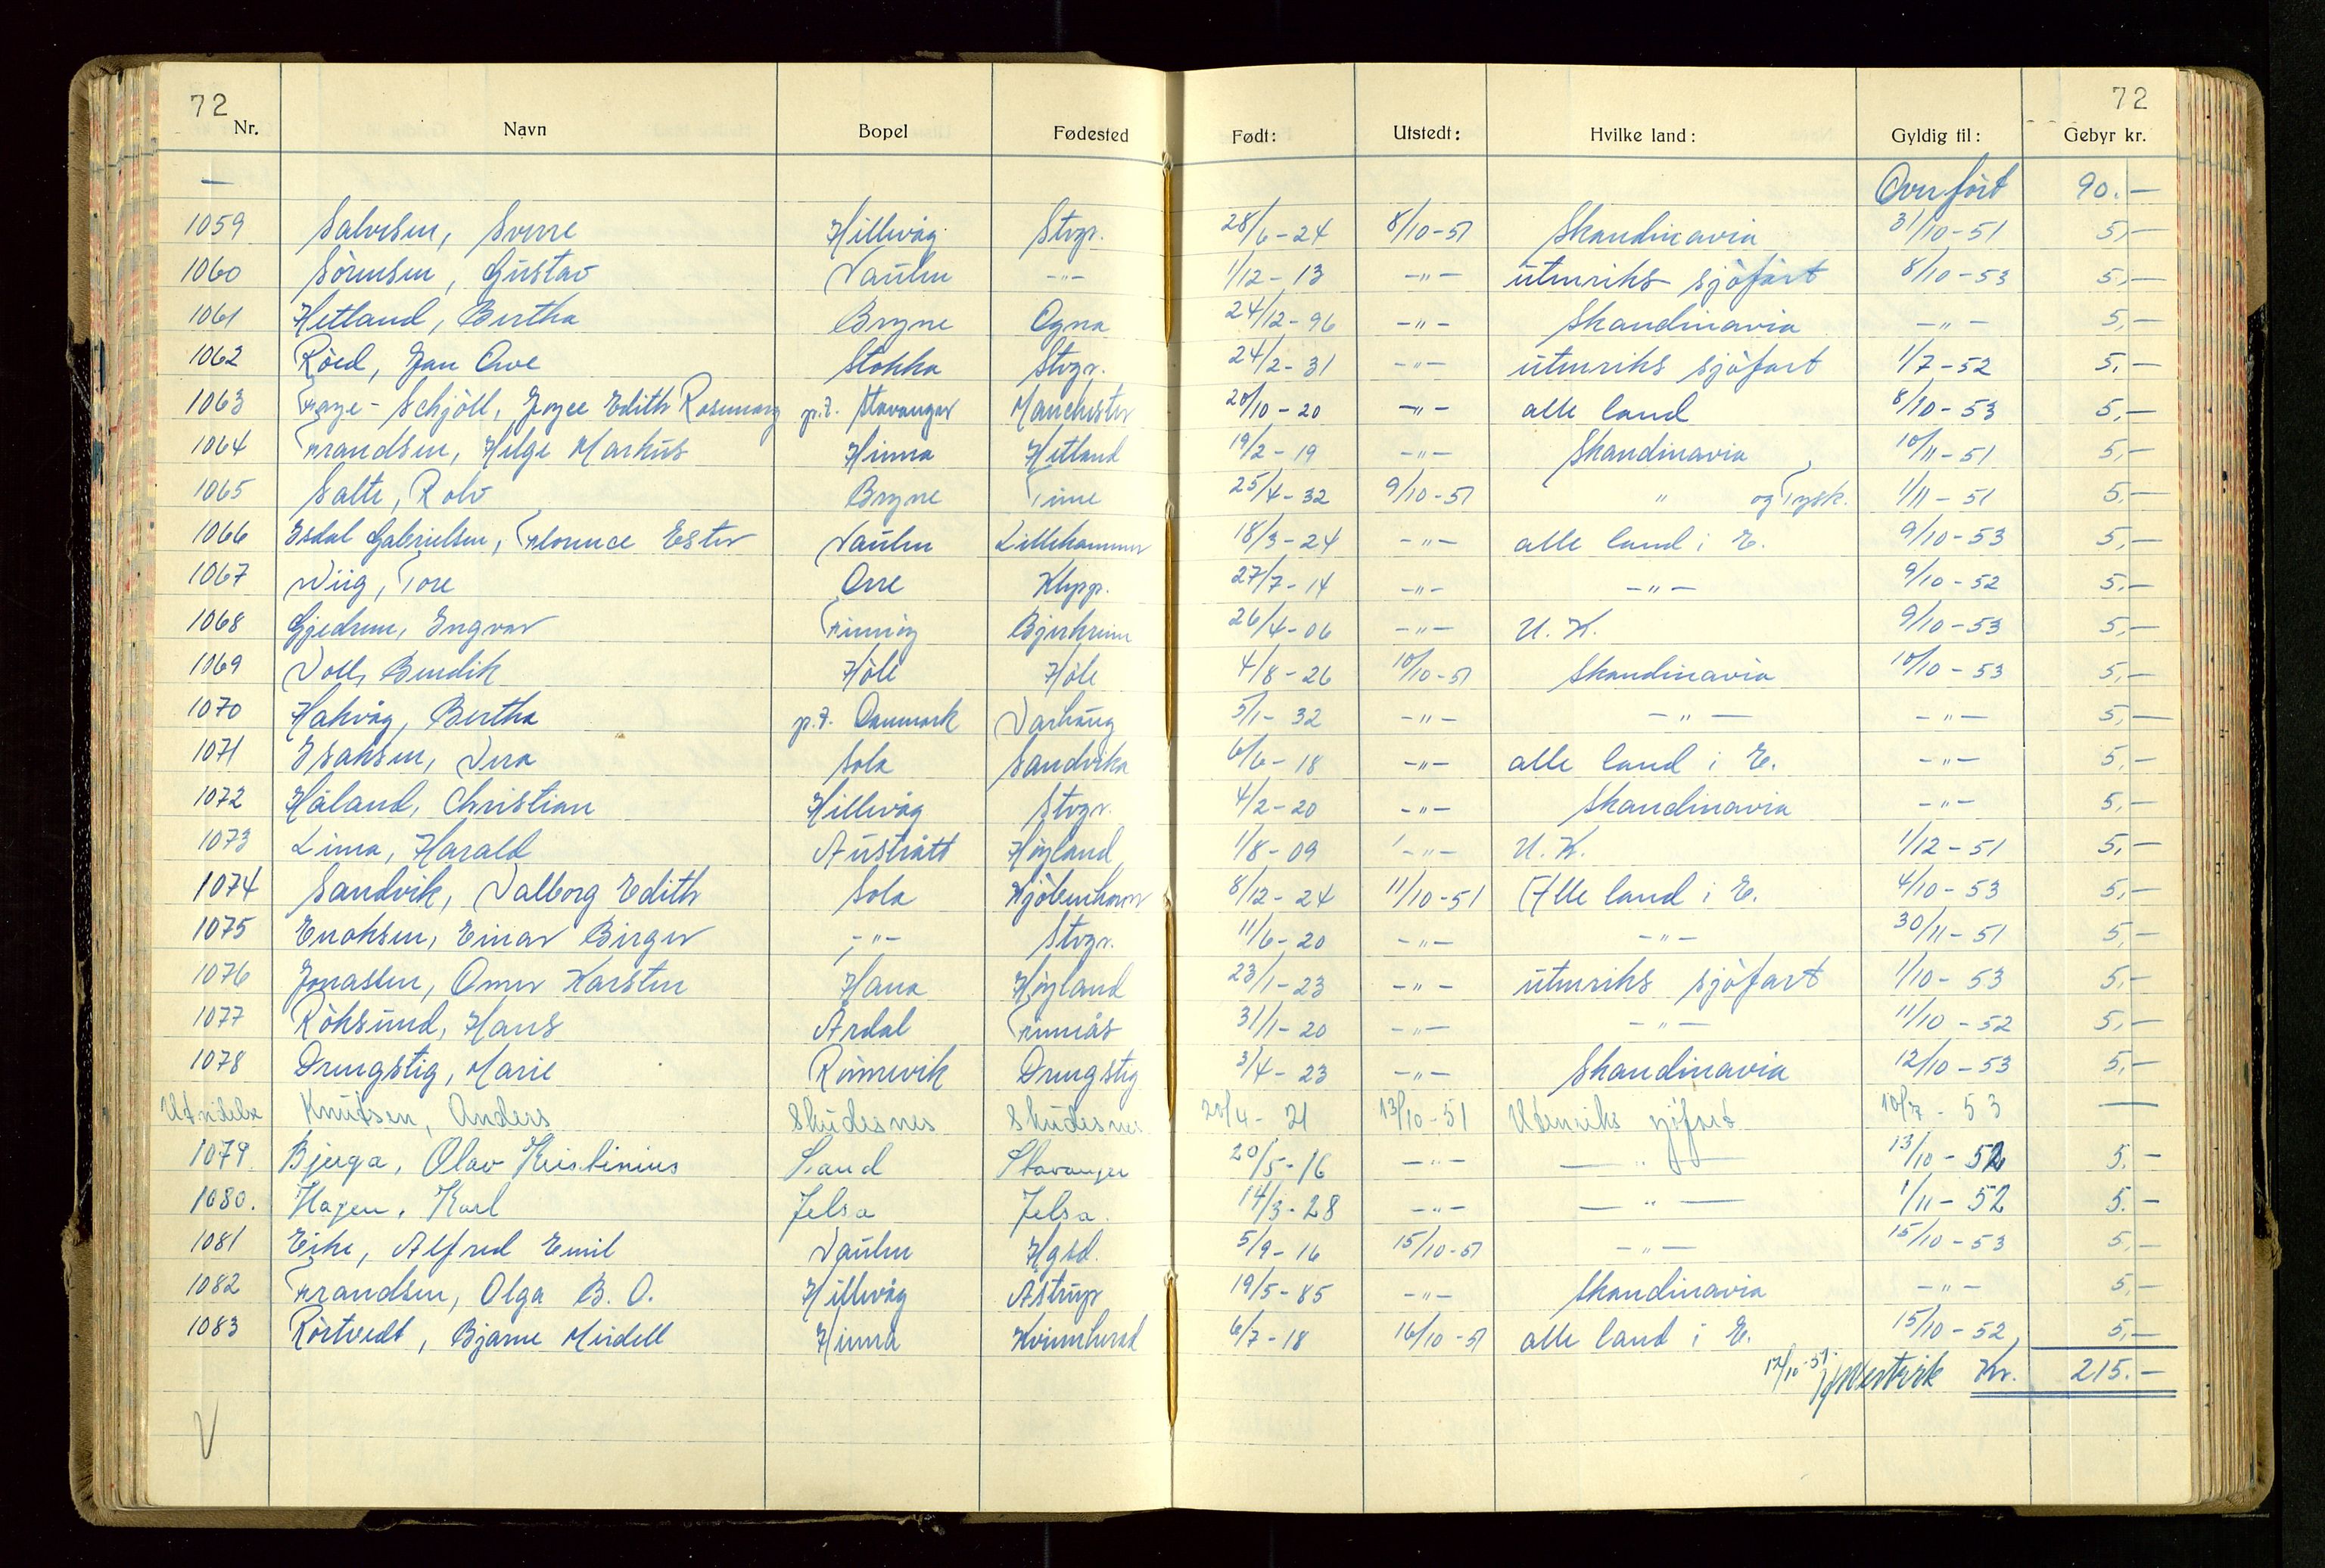 72 72
Nr. Navn Bopel Fødested Født: Utstedt: Hvilke land: Gyldig til: Gebyr kr.
— Overført 90.—
1059 Salvesen, Sverre Hillevåg Stvgr. 28/6-24 8/10-51 Skandinavia 31/10-51 5,—
1060 Sörensen, Gustav Vaulen -"- 1/12-13 -"- utenriks sjöfart 8/10-53 5,—
1061 Hetland, Bertha Bryne Ogna 24/12-96 -"- Skandinavia -"- 5,—
1062 Röed, Jan Owe Stokka Stvgr. 24/2-31 -"- utenriks sjöfart 1/7-52 5,—
1063 Faye-Schjöll, Joyce Edith Rosemary p.t. Stavanger Manchester 20/10-20 -"- alle land 8/10-53 5,—
1064 Frandsen, Helge Markus Hinna Hetland 19/2-19 -"- Skandinavia 10/11-51 5,—
1065 Salte, Rolv Bryne Time 25/4-32 9/10-51 " og Tysk. 1/11-51 5,—
1066 Esdal Gabrielsen, Florence Ester Vaulen Lillehammer 18/3-24 -"- alle land i E. 9/10-53 5,—
1067 Wiig, Tore Orre Klepp. 27/7-14 -"- -"- 9/10-52 5,—
1068 Gjedrem, Ingvar Finnöy Bjerkreim 26/4-06 -"- U.K. 9/10-53 5,—
1069 Voll, Bendik Höle Höle 4/8-26 10/10-51 Skandinavia 10/10-53 5,—
1070 Håkvåg, Bertha p.t. Danmark Varhaug 5/1-32 -"- -"- -"- 5,—
1071 Isaksen, Vera Sola Sandvika 6/6-18 -"- alle land i E. -"- 5,—
1072 Håland, Christian Hillevåg Stvgr. 4/2-20 -"- Skandinavia -"- 5,—
1073 Lima, Harald Austrått Höyland 1/8-09 -"- U.K. 1/12-51 5,—
1074 Sandvik, Valborg Edith Sola Kjöbenhavn 8/12-24 11/10-51 Alle land i E. 4/10-53 5,—
1075 Enoksen, Einar Birger -"- Stvgr. 11/6-20 -"- -"- 30/11-51 5,—
1076 Jonassen, Omer Karsten Hana Höyland 23/1-23 -"- utenriks sjöfart 1/10-53 5,—
1077 Röksund, Hans Årdal Finnås 31/1-20 -"- -"- 11/10-52 5,—
1078 Drengstig, Marie Rönnevik Drengstig 3/4-23 -"- Skandinavia 12/10-53 5,—
Utvidelse Knutsen, Anders Skudesnes Skudesnes 20/4-21 13/10-51 Utenriks sjöfart 10/7-53 —
1079. Bjerga, Olav Kristinius Sand Stavanger 20/5-16 -"- -"- 13/10-52 5.—
1080. Hagen, Karl Jelsa Jelsa. 14/3-28 -"- -"- 1/11-52 5.—
1081 Eike, Alfred Emil Vaulen Hgsd. 5/9-16 15/10-51 -"- 15/10-53 5,—
1082 Frandsen, Olga B. O. Hillevåg Åstrup 19/5-85 -"- Skandinavia -"- 5,—
1083 Rörtvedt, Bjarne Meidell Hinna Kvinnherad 6/7-18 16/10-51 alle land i E. 15/10-52 5,—
17/10-51. Kr. 215.—